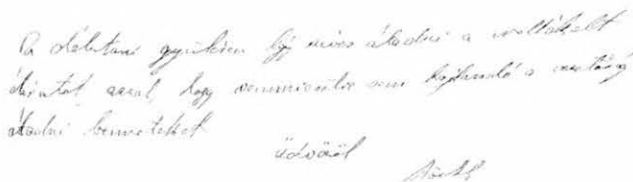 A délutáni gyűlésen légy szíves átadni a mellékelt
iratot azzal, hogy semmiesetre sem hajlandó a
átadni benneteket
üdvözöl